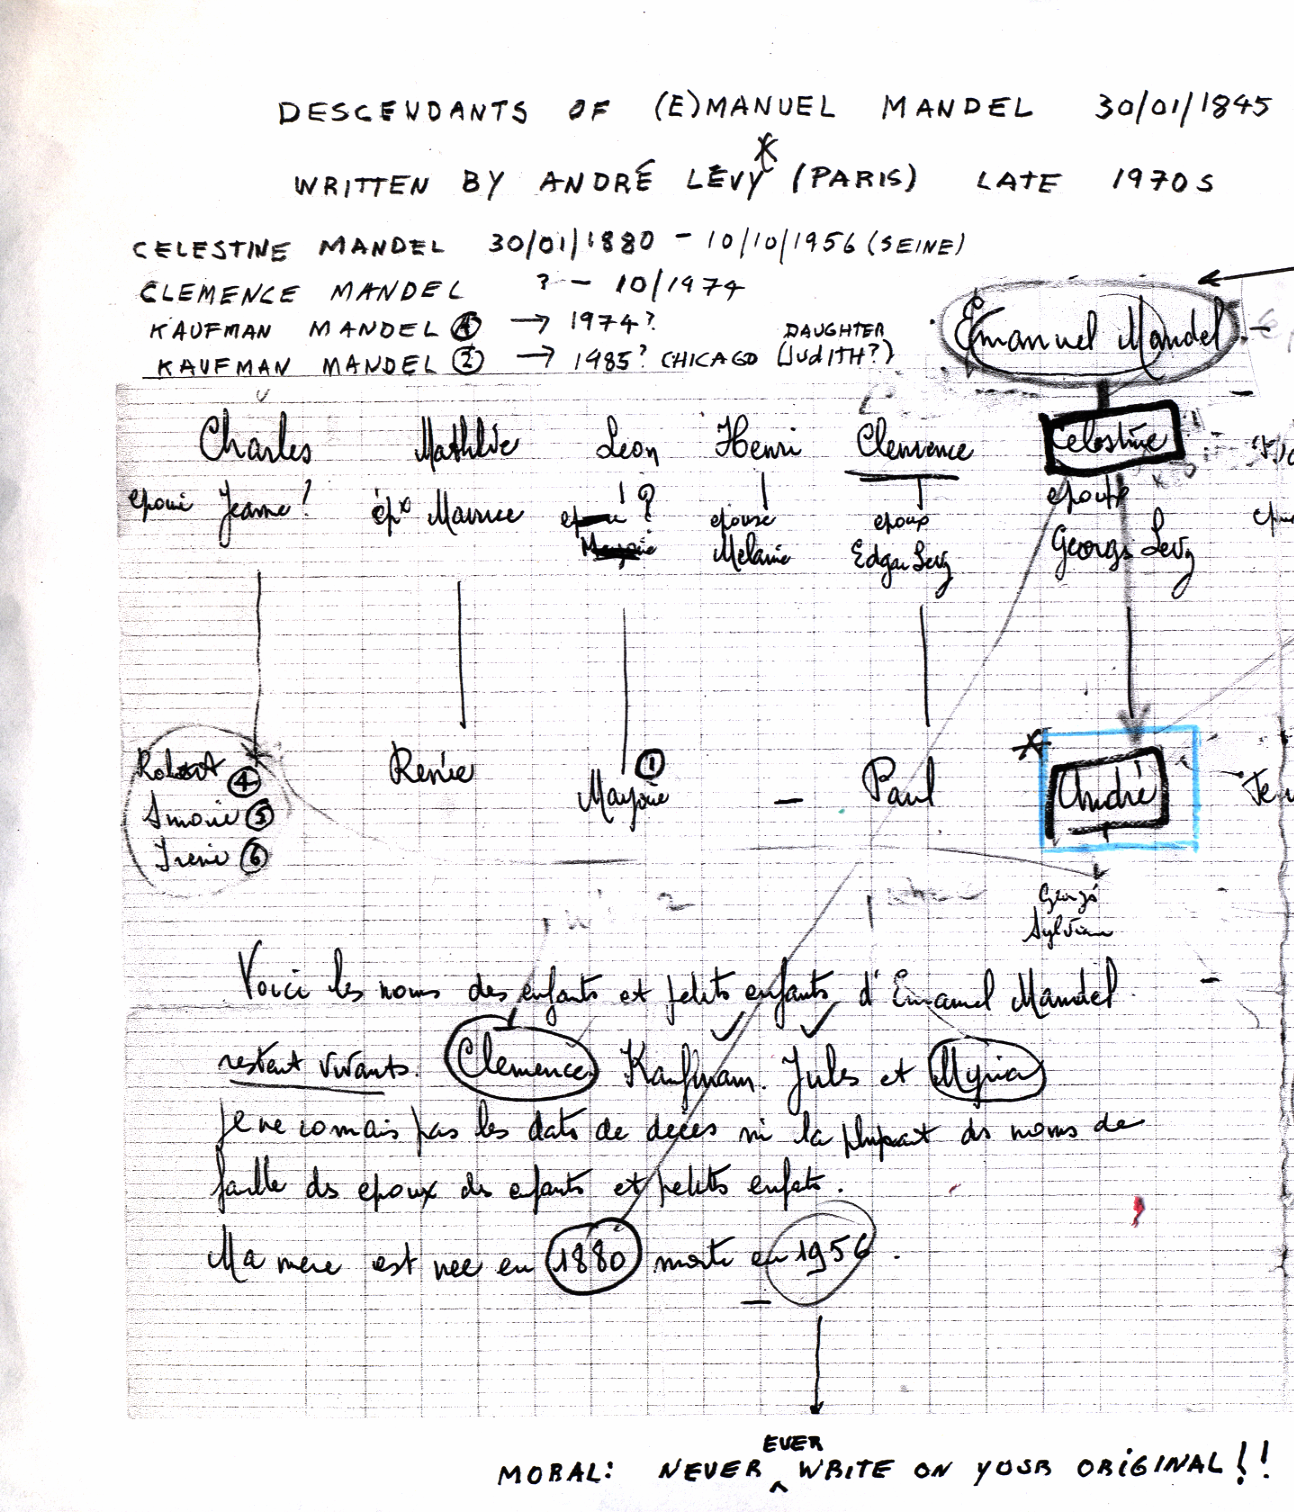 DESCENDANTS OF (E)MANUEL MANDEL 30/01/1845
WRITTEN BY ANDRÉ LÉVY* (PARIS) LATE 1970S
CELESTINE MANDEL 30/01/1880 - 10/10/1956 (SEINE)
CLEMENCE MANDEL ? - 10/1974
KAUFMAN MANDEL ① → 1974?
KAUFMAN MANDEL ② → 1985? CHICAGO DAUGHTER (JUDITH?)
Emanuel Mandel -
Charles Mathilde Leon Henri Clemence Celestine
epouse Jeanne? épx Maurice ? epouse Melanie epoux Edgar Levy epoux Georges Levy
Robert ④ Renée Mayoue ① - Paul * André
Simone ⑤
Irene ⑥
Georges
Sylvian
Voici les noms des enfants et petits enfants d'Emanuel Mandel -
restant vivants. Clemence Kaufmam. Jules et Myria
je ne connais pas les dates de décès ni la plupart ds noms de
faille ds epoux ds enfants et petits enfats.
Ma mere est nee en 1880 morte en 1956.
MORAL: NEVER EVER WRITE ON YOUR ORIGINAL!!